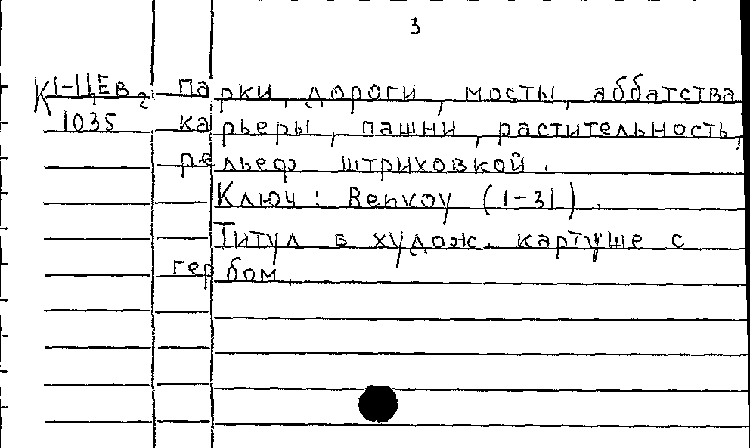 3
К1-ЦЕв 2 парки, дороги, мосты, аббатства
1035 карьеры, пашни, растительность,
рельеф штриховкой.
Ключ: Renvoy (1-31).
Титул в худож. картуше с
гербом